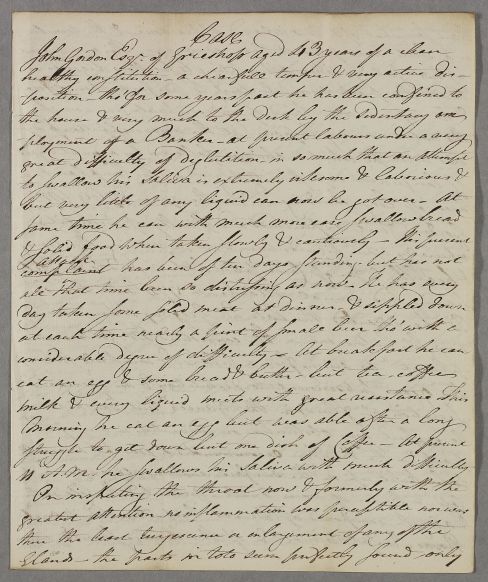 Case
John Gordon Esqr. of              aged 43 years of a clean
healthy constitution - a chearfull temper & very active dis-
position - tho for some years past he has been confined to
the house & very much to the desk by the sedentary em
ployment of a Banker - at present labours under a very
great difficulty of deglutition in so much that an attempt
to swallow his Saliva is extremely irksome & laborious &
but very little of any liquid can now be got over - At
same time he can with much more ease swallow bread
& solid food when taken slowly & cautiously - His present
complaint has been of ten days standing but has not
all that time been so distressing as now - He has every
day taken some solid meat at dinner & sippled down
at each time nearly a pint of small beer tho with a
considerable degree of difficulty - At breakfast he can
eat an egg & some bread & butter - but tea coffee
milk & every liquid meets with great resistance This
morning he eat an egg but was able after a long
struggle to get down but one dish of Coffee - At present
11 A.M. he swallows his Saliva with much difficulty
On inspecting the throat now & formerly with the
greatest attention no inflammation was perceptible nor even
thro the least turgescence or enlargement of any of the
Glands - the parts in toto seem perfectly sound - only